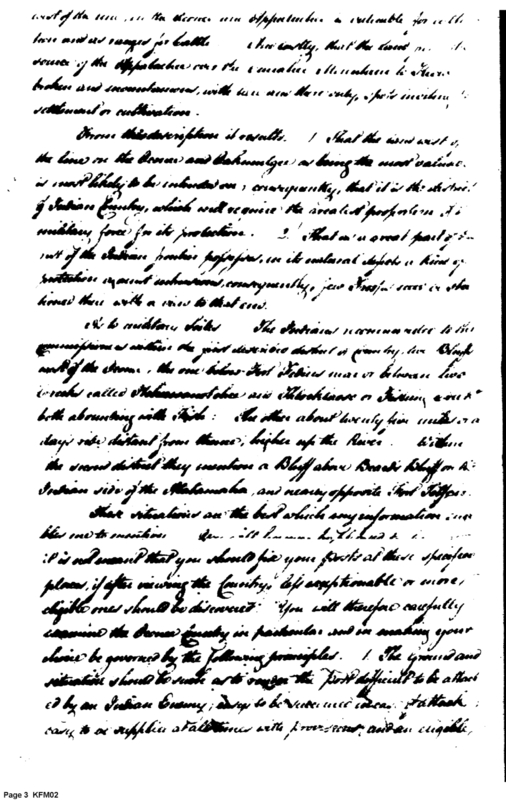 west of the line, on the Oconee and Appalachee is valuable for
tion and as ranges for cattle lastly, that the land
source of the Appalachee over the to
broken and mountainous, with here and there only, spots inviting to
settlement or cultivation.
From this description it results. 1. That the land west of
the line on the Oconee and Oakmulgee as being the most valuable
is most likely to be intruded on; consequently, that it is the district
of Indian Country, which will require the greatest proportion of
military force for its protection. 2. That as a great part of the
rest of the Indian frontier possesses, in its natural defects a kind of
protection against intrusions, consequently, few Troops need be sta
tioned there with a view to that end.
As to military Scites The Indians recommended to the
commissioners within the first described district of country, two Bluffs
west of the Oconee, the one below Fort Fidius near or between two
creeks called and or Fishing creek
both abounding with Fish: the other about twenty five miles or a
days ride distant from thence, higher up the River. Within
the second district they mention a Bluff above Beards Bluff on the
Indian side of the Alatamaha, and nearly opposite Fort
These situations are the best which any information ena
bles me to mention. You will however understand
it is not meant that you should fix your posts at these specified
places, if after viewing the Country, less exceptionable or more
eligible ones should be discovered. You will therefore carefully
examine the Oconee Country in particular and in making your
choice be governed by the following principles. 1. The ground and
situation should be such as to render the post difficult to be attack
ed by an Indian Enemy; easy to be if attack
easy to be supplied at all times with provisions, and an eligible,
Page 3 KFM02